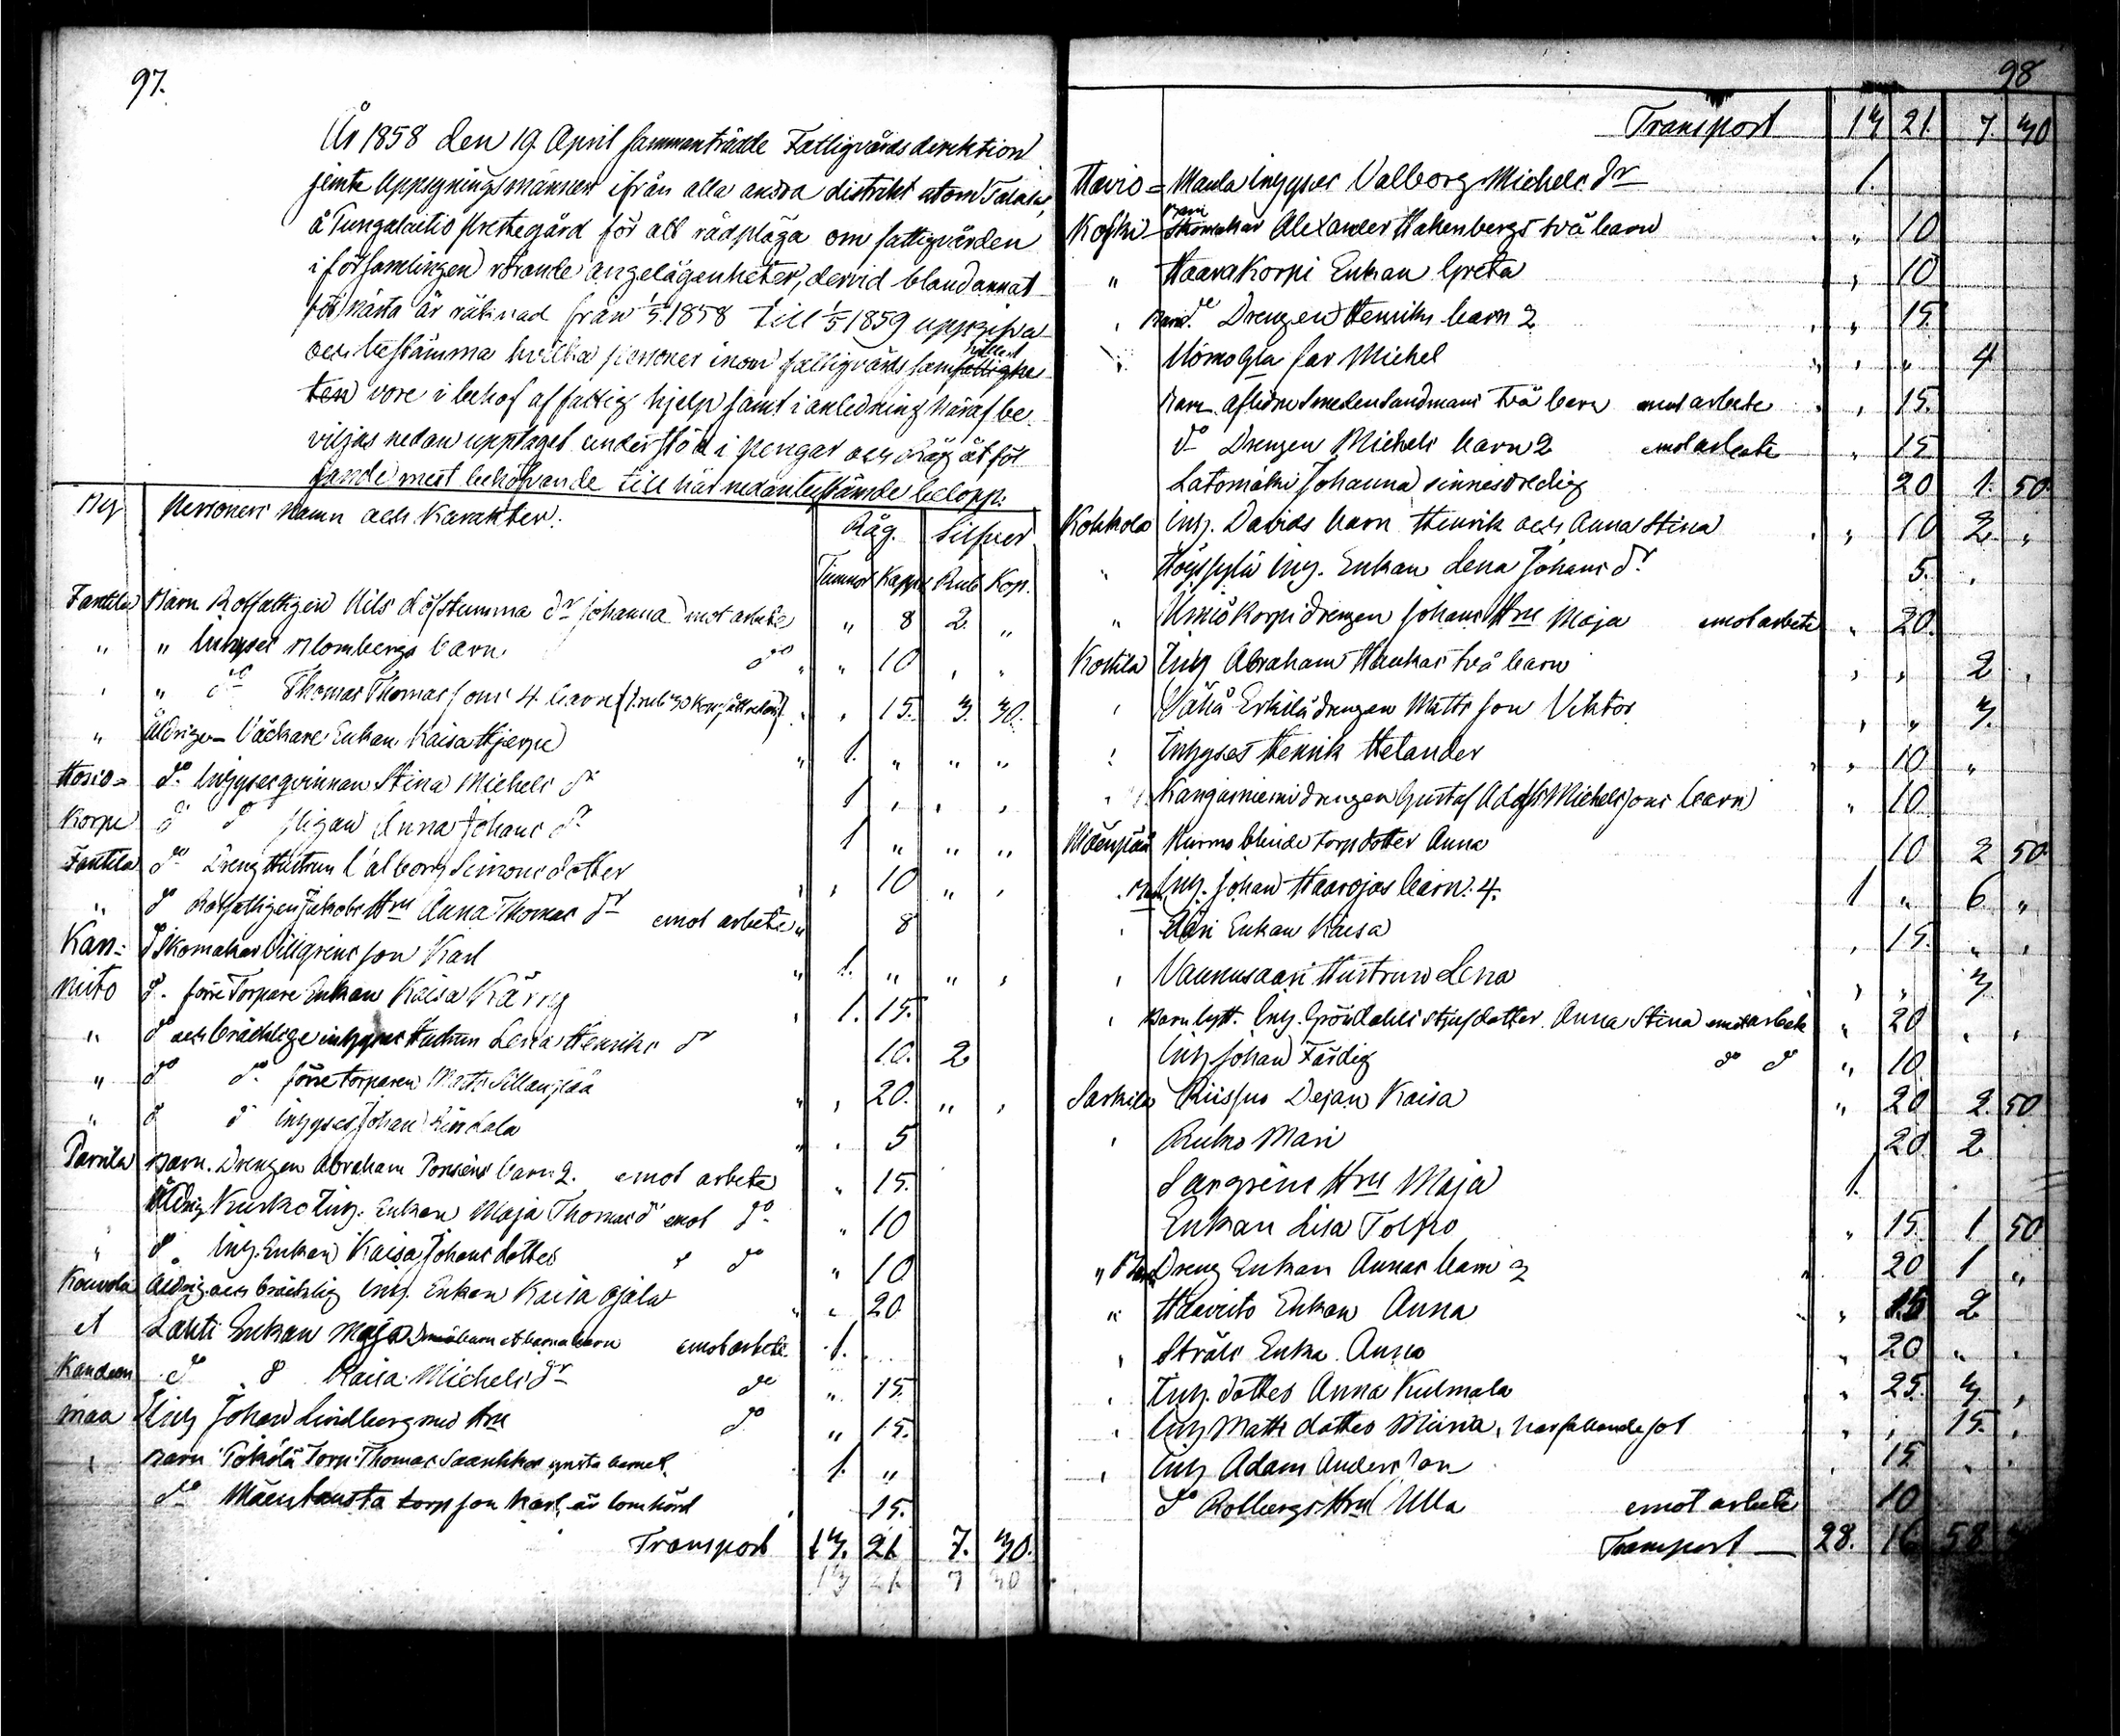 97.
År 1858 den 19 April sammanträdde Fattigvårdsdirektion
jemte Uppsyningsmännen ifrån alla andra distrikt utom
å Tungalaitio prestegård för att rådpläga om fattigvården
i församlingen rörande angelägenheter, dervid bland annat
för nästa år räknad från 1/5 1858 till 1/5 1859 uppgifva
och bestämma hvilka personer inom fattigvårds
vore i behof af fattig hjelp samt i anledning häraf be-
viljas nedan upptaget understöd i pengar och Råg åt föl-
jande mest behöfvande till här nedan bestämde belopp.
By Personers namn och Karakter. Råg. Silfver
Tunnor Kappar Rub Kop.
Fantila Barn Rotfattigen Nils döfstumma dr Johanna emot arbete " 8 2. "
" " Inhyses Blombergs barn do " 10 , ,
" " do Thomas Thomassons 4 barn , 15. 3. 30.
" Åldriga Väckare Enkan Kaisa Hjerpe 1. " " "
do Inhyses qvinnan Stina Michels dr 1 , , ,
Korpi do do pigan Anna Johans dr 1 " " "
Fantila do Dreng Hustrun Valborg Simons dotter , 10 " ,
" do Rotfattigen Jakobs Hru Anna Thomas dr emot arbete " 8
Kan= do Skomakar son Karl 1. " " ,
niito do förre Torpare Enkan Kaisa Kärry 1. 15.
" do och bräcklige inhyses Hustrun Lena Henriks dr 10. 2
" do do förre torparen Matts Sillanpää , 20. " ,
" do do inhyses Johan Rindala , 5
Parrila Barn. Drengen Abraham barn 2. emot arbete " 15.
Åldrig Kurko Inh. Enkan Maja Thomas dr emot do " 10
" do Inh. Enkan Kaisa Johans dotter do " 10
Kouvola Åldrig och bräcklig Inh. Enkan Kaisa Ojala " 20
Lahti Enkan Maja emot arbete 1.
do do Kaisa Michels dr do " 15.
maa Inh Johan Lindberg med Hru do " 15.
Barn Torp. Thomas barnet. 1. "
do torp son Karl är lomhörd 15.
Transport 13. 21 7. 30.
13 21 7 30
98
Transport 13 21. 7. 30
Inhyses Valborg Michels dr 1.
Koski Barn Skomakar Alexander Hakenbergs två barn " 10
" Haavakorpi Enkan Greta , 10
, Barn. do Drengen Henriks barn 2 " 15.
far Michel , " 4
Barn aflidne Smeden Sandmans två barn emot arbete , 15.
do Drengen Michels barn 2 emot arbete " 15
Latomäki Johanna sinnesvredig 20 1. 50.
Kokkola Inh. Davids barn Henrik och Anna Stina , 10 2. "
" Inh. Enkan Lena Johans dr 5. ,
" drengen Johans Hru Maja emot arbete " 20.
Kostila Inh Abraham Haukas två barn , , 2 ,
, Vähä Erkilä drengen Matts son Viktor , " 3.
, Inhyses Henrik Helander , 10 "
Kangasniemi drengen Gustaf Adolf Michelssons barn " 10
Mäenpää Nurmo blinde torp dotter Anna 10 2 50.
Barn Inh. Johan Haarojas barn 4. 1 " 6 "
, Enkan Kaisa , 15. " ,
, Vaanusaari Hustrun Lena , , 3
, Barn lytt. Inh. Gröndahls styfdotter Anna Stina emot arbete " 20 , ,
Inh Johan Färdig do do " 10
Sarkila Pejan Kaisa " 20 2 50
, Ruko Mari 20 2
Hru Maja 1.
Enkan Lisa Tolpo " 15. 1 50
" Barn Dreng Enkan Annas barn 3 20 1 "
" Haavisto Enkan Anna " 15 2
, Stråls Enka Anna " 20 " ,
, Inh. dotter Anna Kulmala " 25. 3 ,
, Inh Matts dotter Miina, har fallandesot , , 15. ,
, Inh Adam Andersson , 15. , ,
do Rolbergs Hru Ulla emot arbete 10
Transport 28. 16 58